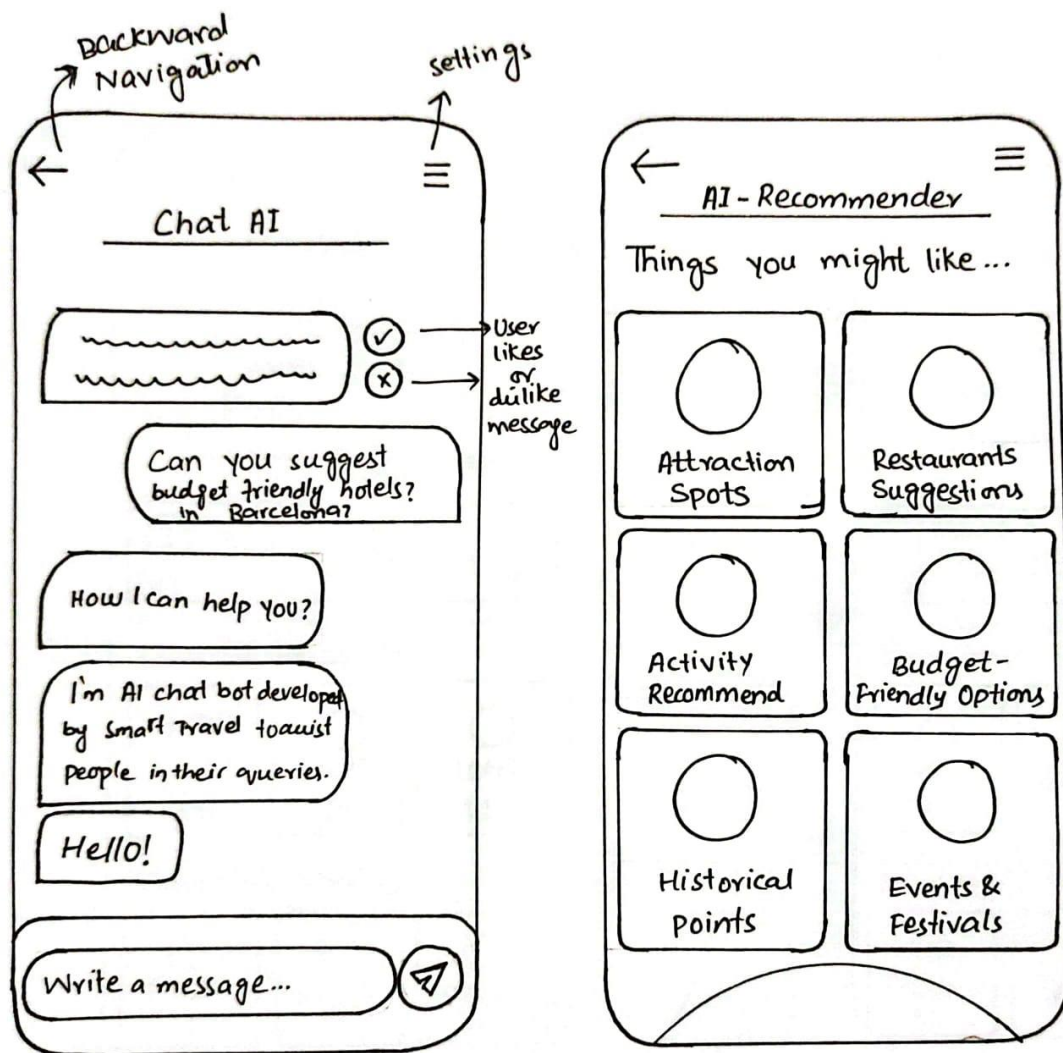 Backward
Navigation
settings
Chat AI
User
likes
or
dislike
message
Can you suggest
budget friendly hotels?
in Barcelona?
How I can help you?
I'm AI chat bot developed
by Smart Travel to assist
people in their queries.
Hello!
Write a message...
AI - Recommender
Things you might like...
Attraction
Spots
Restaurants
Suggestions
Activity
Recommend
Budget-
Friendly Options
Historical
Points
Events &
Festivals